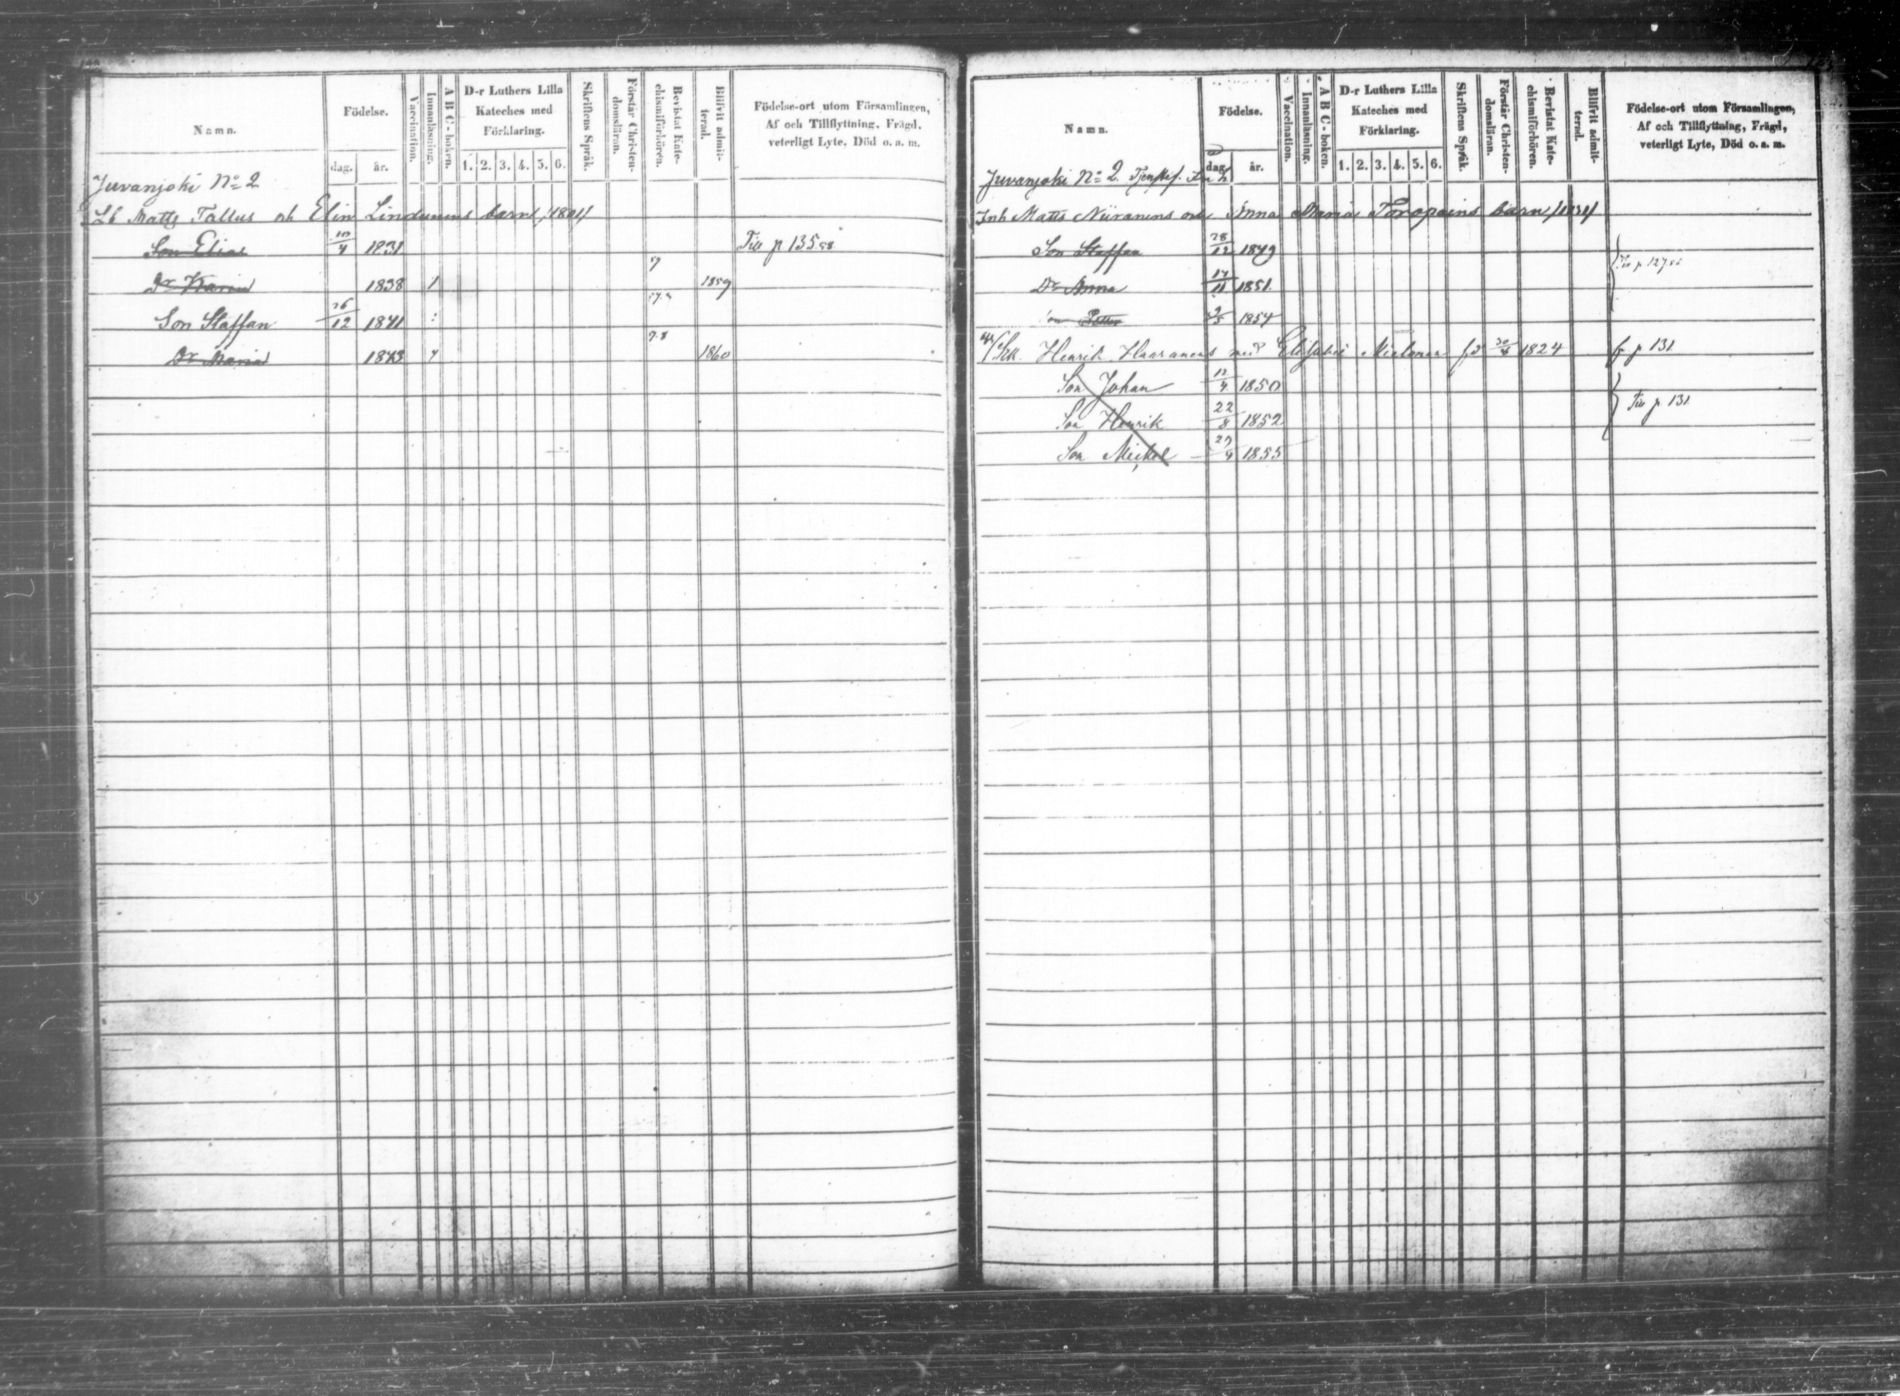 Namn. Födelse. Vaccination. Innanläsning. A B C-boken. D-r Luthers Lilla Kateches med Förklaring. Skriftens Språk. Förstår Christendomsläran. Bevistat Katechismiförhören. Blifvit admitterad. Födelse-ort utom Församlingen, Af och Tillflyttning, Frägd, veterligt Lyte, Död o. a. m.
dag. år. 1. 2. 3. 4. 5. 6.
Juvanjoki No 2
Matts Tallus och Elin Lindunens barn /1801/
Son Elias 10/4 1831 Till p 135
Dr Karin 1838 1859
Son Staffan 26/12 1841
Dr Maria 1843 1860
Namn. Födelse. Vaccination. Innanläsning. A B C-boken. D-r Luthers Lilla Kateches med Förklaring. Skriftens Språk. Förstår Christendomsläran. Bevistat Katechismiförhören. Blifvit admitterad. Födelse-ort utom Församlingen, Af och Tillflyttning, Frägd, veterligt Lyte, Död o. a. m.
dag. år. 1. 2. 3. 4. 5. 6.
Juvanjoki No 2.
Inh Matts Niiranens och Anna Maria Toropains barn
Son Staffan 28/12 1849
Dr Anna 17/11 1851
Petter 1854
Henrik Haaranens med Elisabet fd 30/8 1824 p 131
Son Johan 1850
Son Henrik 22/8 1852 Till p 131
Son Mickel 1855